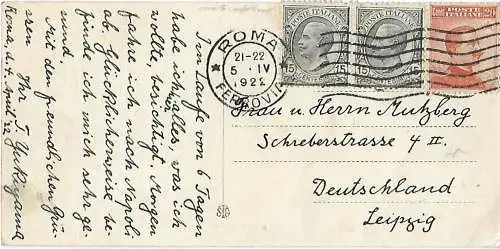 Im Laufe von 6 Tagen
habe ich alles, was ich
hier
wollte, besichtigt. Morgen
fahre ich nach Napoli
ab. Glücklicherweise be-
finde ich mich sehr ge-
sund.
Mit den freundlichen Grü-
ssen Ihr J. Yukiyama
Roma, d. 4. April 22
ROMA
21-22
5 · IV
1922
FERROVIA
POSTE ITALIANE
15
15
POSTE ITALIANE
15
15
POSTE
ITALIANE
20
Frau u. Herrn Mutzberg
Schreberstrasse 4 II.
Deutschland
Leipzig